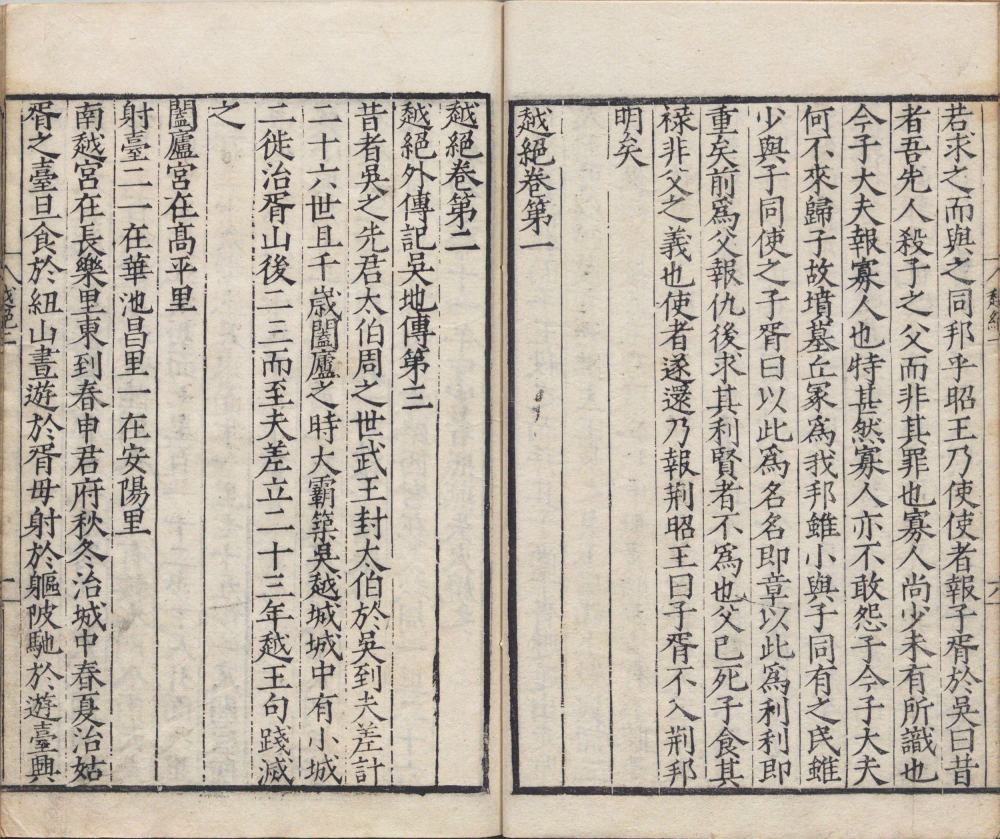 若求之而與之同邦乎昭王乃使使者報子胥於吳曰昔
者吾先人殺子之父而非其罪也寡人尚少未有所識也
今子大夫報寡人也特甚然寡人亦不敢怨子今子大夫
何不來歸子故墳墓丘冢為我邦雖小與子同有之民雖
少與子同使之子胥曰以此為名名即章以此為利利即
重矣前為父報仇後求其利賢者不為也父已死子食其
祿非父之義也使者遂還乃報荆昭王曰子胥不入荆邦
明矣
越絕卷第一
越絕卷第二
越絕外傳記吳地傳第三
昔者吳之先君太伯周之世武王封太伯於吳到夫差計
二十六世且千歲闔廬之時大霸築吳越城城中有小城
二徙治胥山後二三而至夫差立二十三年越王句踐滅
之
闔廬宮在高平里
射臺二一在華池昌里一在安陽里
南越宮在長樂里東到春申君府秋冬治城中春夏治姑
胥之臺旦食於紐山晝遊於胥毋射於軀陂馳於遊臺興